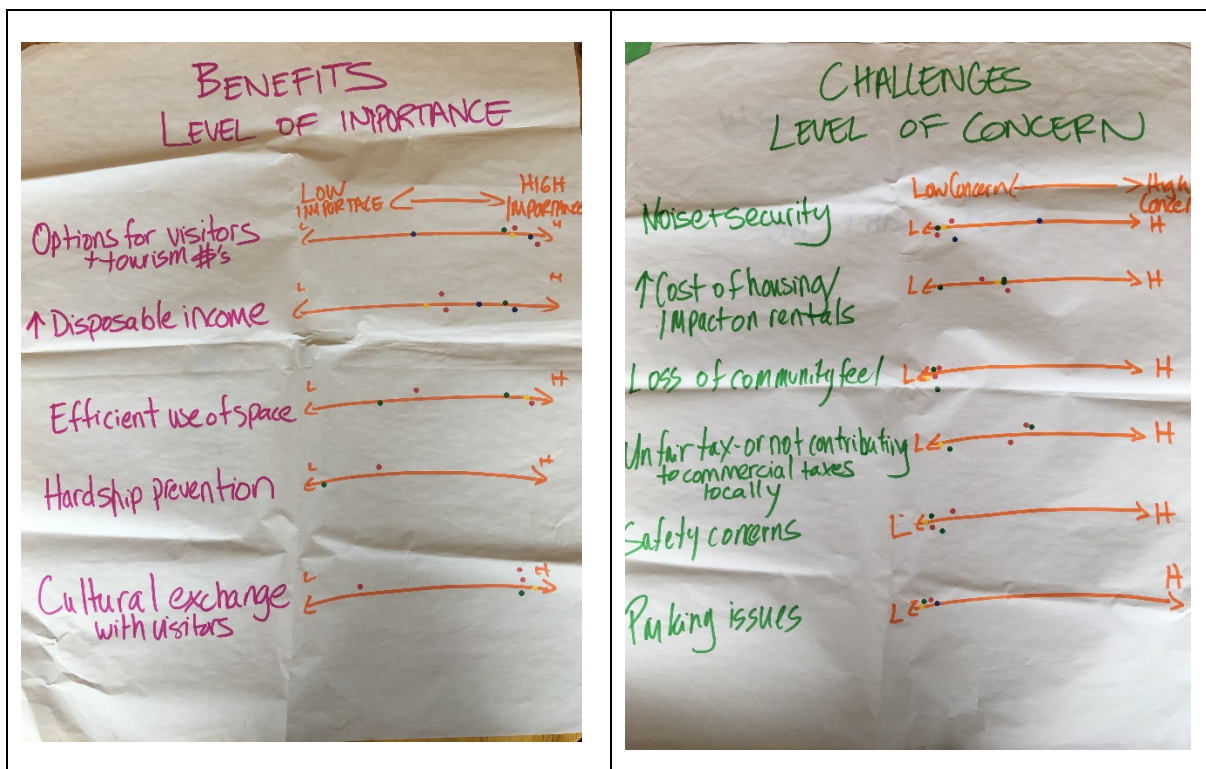 BENEFITS
LEVEL OF IMPORTANCE
LOW IMPORTACE
HIGH IMPORTANCE
Options for visitors
+ tourism #'s
L H
↑ Disposable income
L H
Efficient use of space
L H
Hardship prevention
L H
Cultural exchange
with visitors
L H
CHALLENGES
LEVEL OF CONCERN
Low Concern
High Concer
Noise + security
L H
↑ Cost of housing/
impact on rentals
L H
Loss of community feel
L H
Unfair tax - or not contributing
to commercial taxes
locally
L H
Safety concerns
L H
Parking issues
L H